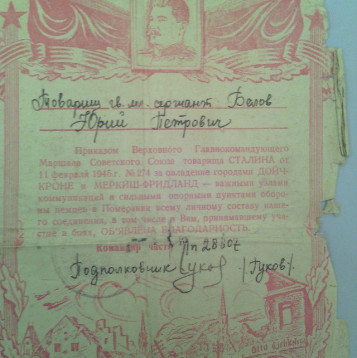 Товарищ гв. мл. сержант Белов
Юрий Петрович
Приказом Верховного Главнокомандующего
Маршала Советского Союза товарища СТАЛИНА от
11 февраля 1945 г. № 274 за овладение городами ДОЙЧ-
КРОНЕ и МЕРКИШ-ФРИДЛАНД — важными узлами
коммуникаций и сильными опорными пунктами оборо-
ны немцев в Померании всему личному составу наше-
го соединения, в том числе и Вам, принимавшему уча-
стие в боях, ОБ'ЯВЛЕНА БЛАГОДАРНОСТЬ.
Командир части пп 28
Подполковник (Гуков).